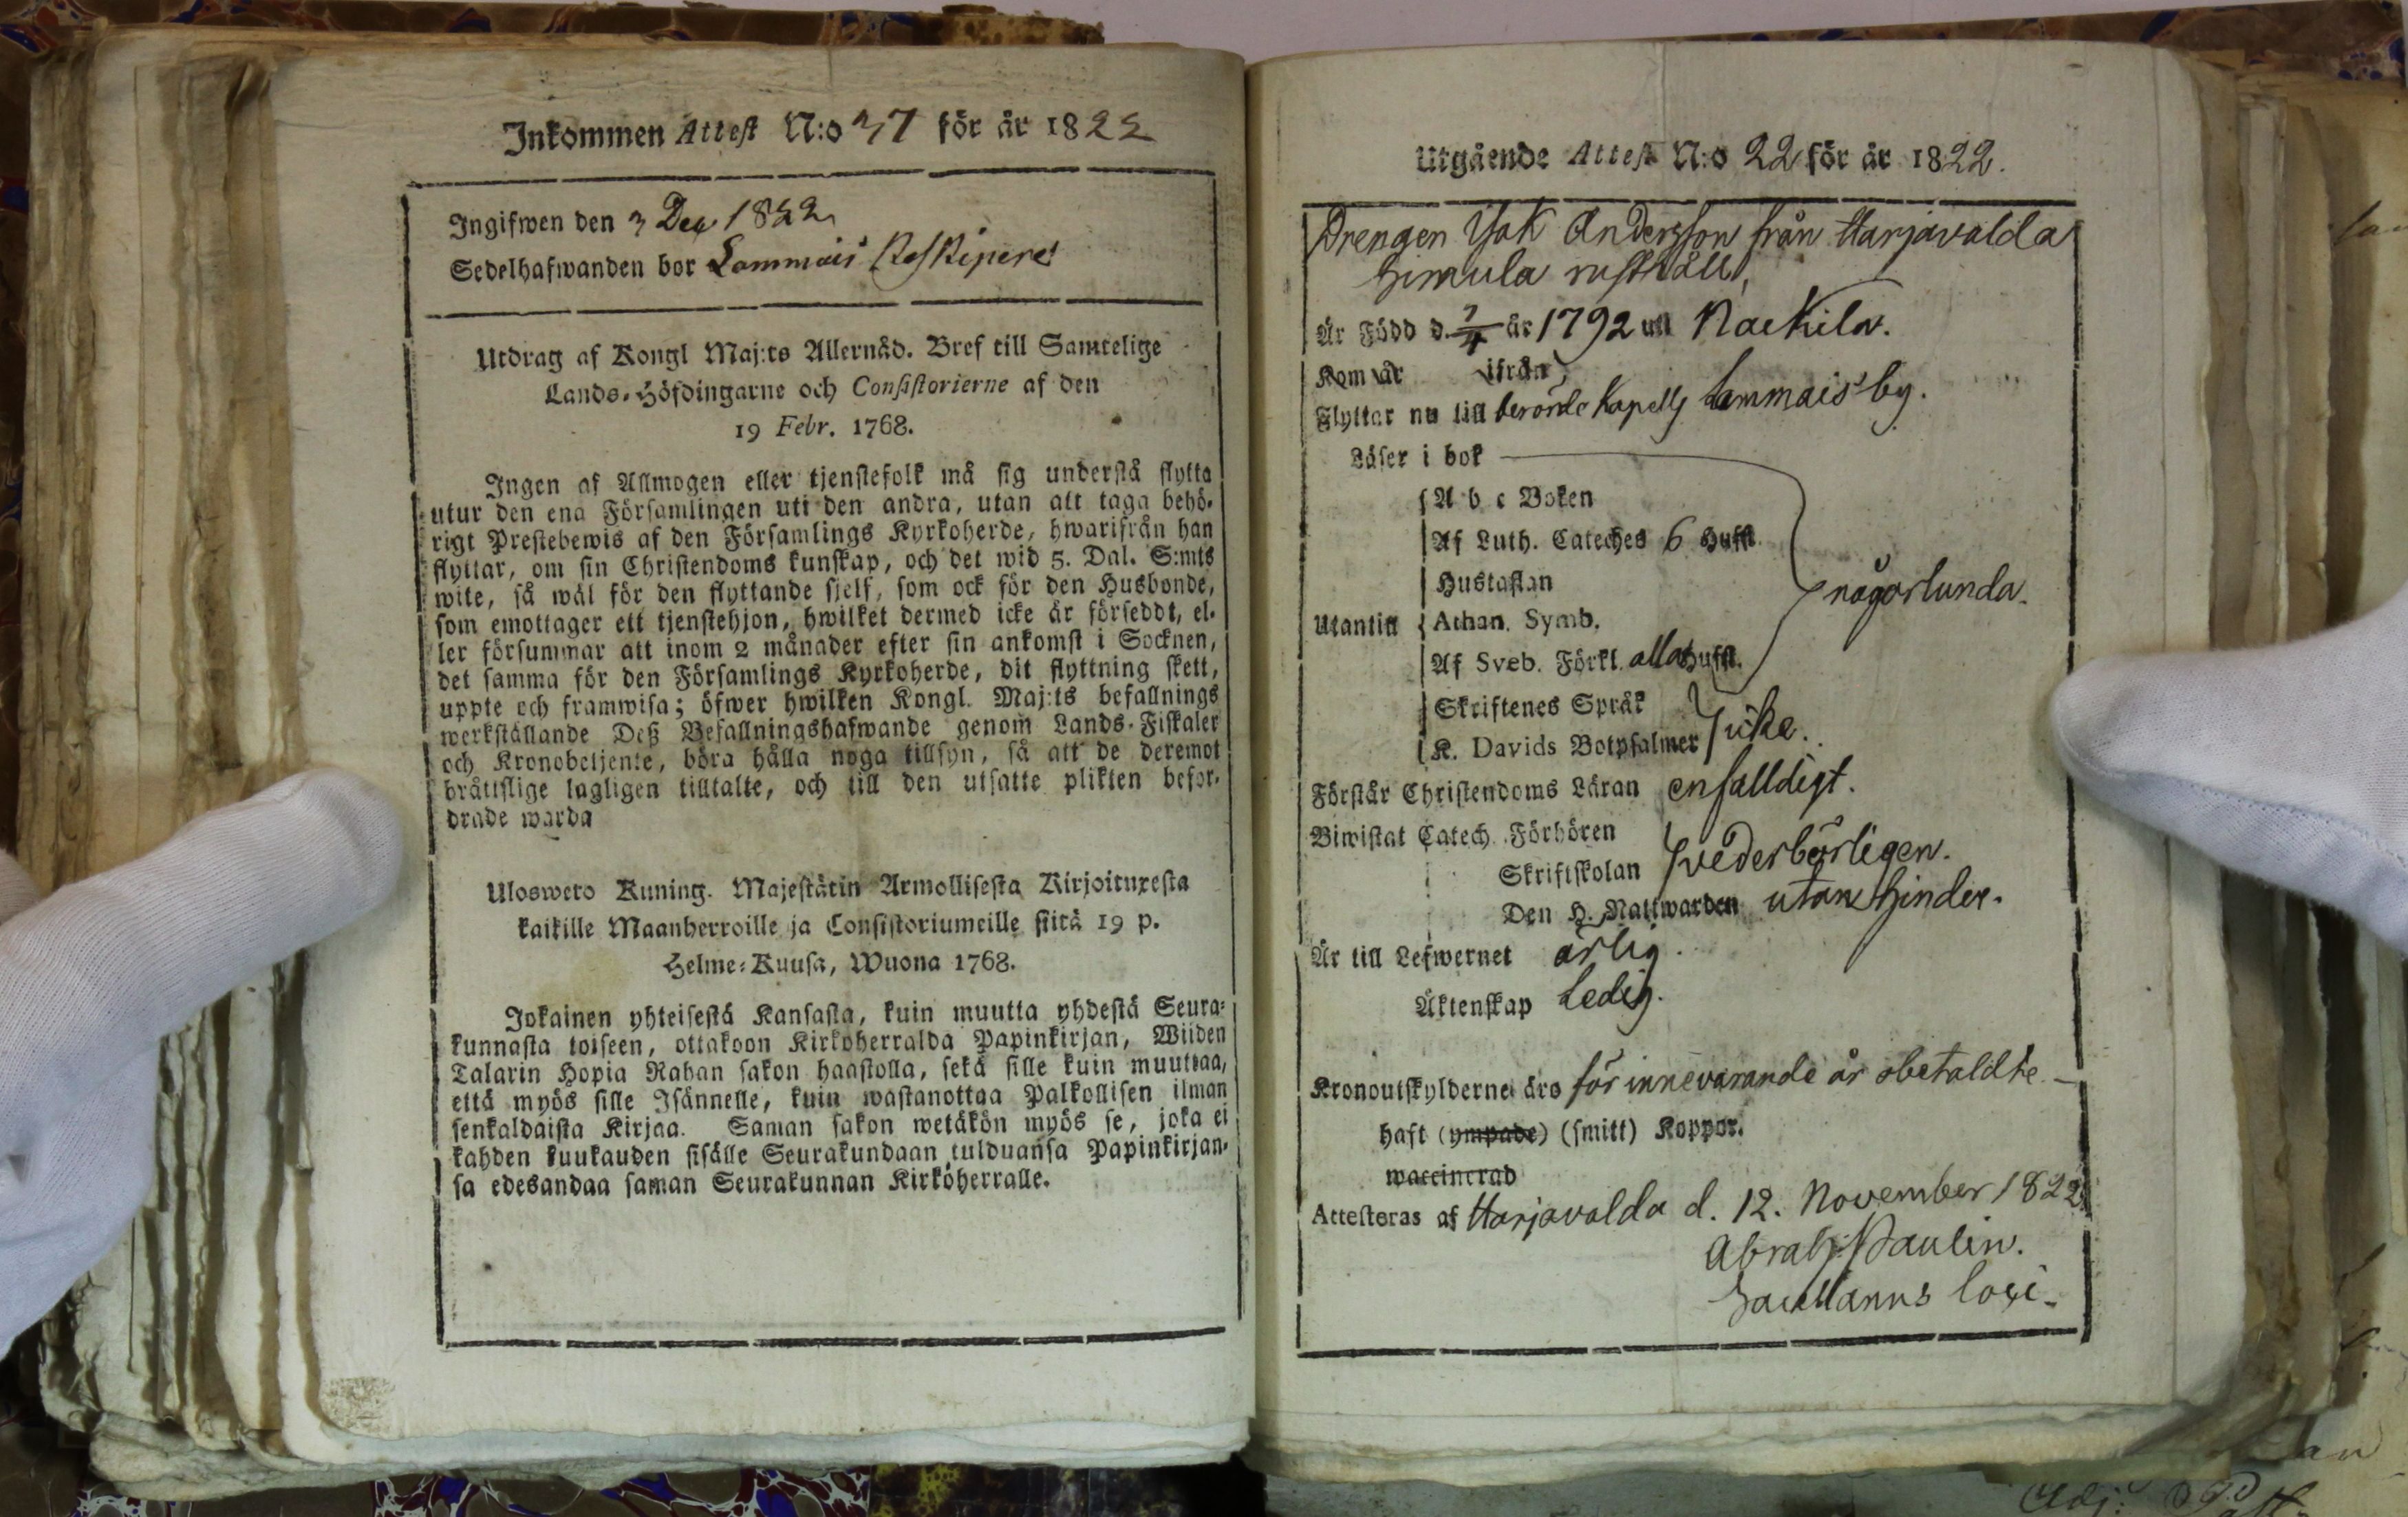 Inkommen Attest N:o 37 för år 1822
Ingifwen den 3 Dec 1822
Sedelhafwanden bor Lammais
Utdrag af Kongl Maj:ts Allernåd. Bref till Samtelige
Lands-Höfdingarne och Consistorierne af den
19 Febr. 1768.
Ingen af Allmogen eller tjenstefolk må sig understå flytta
utur den ena Församlingen uti den andra, utan att taga behö-
rigt Prestebewis af den Församlings Kyrkoherde, hwarifrån han
flyttar, om sin Christendoms kunskap, och det wid 5. Dal. S:mts
wite, så wäl för den flyttande sjelf, som ock för den Husbonde,
som emottager ett tjenstehjon, hwilket dermed icke är förseddt, el-
ler försummar att inom 2 månader efter sin ankomst i Socknen,
det samma för den Församlings Kyrkoherde, dit flyttning skett,
uppte och framwisa; öfwer hwilken Kongl. Maj:ts befallnings
werkställande Deß Befallningshafwande genom Lands-Fiskaler
och Kronobetjente, böra hålla noga tillsyn, så att de deremot
bråttslige lagligen tilltalte, och till den utsatte plikten befor-
drade warda
Uloswero Kuning. Majestätin Armollisesta Kirjoituxesta
kaikille Maanherroille ja Consistoriumeille siitä 19 p.
Helme-Kuusa, Wuona 1768.
Jokainen yhteisestä Kansasta, kuin muutta yhdestä Seura-
kunnasta toiseen, ottakoon Kirkoherralda Papinkirjan, Wiiden
Talarin Hopia Rahan sakon haastolla, sekä sille kuin muuttaa,
että myös sille Isännelle, kuin wastanottaa Palkollisen ilman
senkaldaista Kirjaa. Saman sakon wetäkön myös se, joka ei
kahden kuukauden sisälle Seurakundaan tulduansa Papinkirjan-
sa edesandaa saman Seurakunnan Kirkoherralle.
Utgående Attest N:o 22 för år 1822.
Drengen Isak Andersson från Harjavalda
Himula rusthåll,
Är Född d. 7/4 år 1792 uti Nackila.
Kom år ifrån
Flyttar nu till berörde Kapells Lammais by.
Läser i bok
A b c Boken
Af Luth. Cateches 6 Hufst.
Hustaflan
någorlunda.
Utantill Athan. Symb.
Af Sveb. Förkl. alla Hufst.
Skriftenes Språk
K. Davids Botpsalmer icke.
Förstår Christendoms Läran enfalldigt.
Biwistat Catech. Förhören
Skriftskolan wederbörligen.
Den H. Nattwarden utan hinder.
Är till Lefwernet ärlig.
Äktenskap Ledig.
Kronoutskylderne äro för innevarande år obetaldte.
haft (ympade) (smitt) Koppor.
waccinerad
Attesteras af Harjavalda d. 12. November 1822
Abrah: Paulin.
Sacellanus loci.